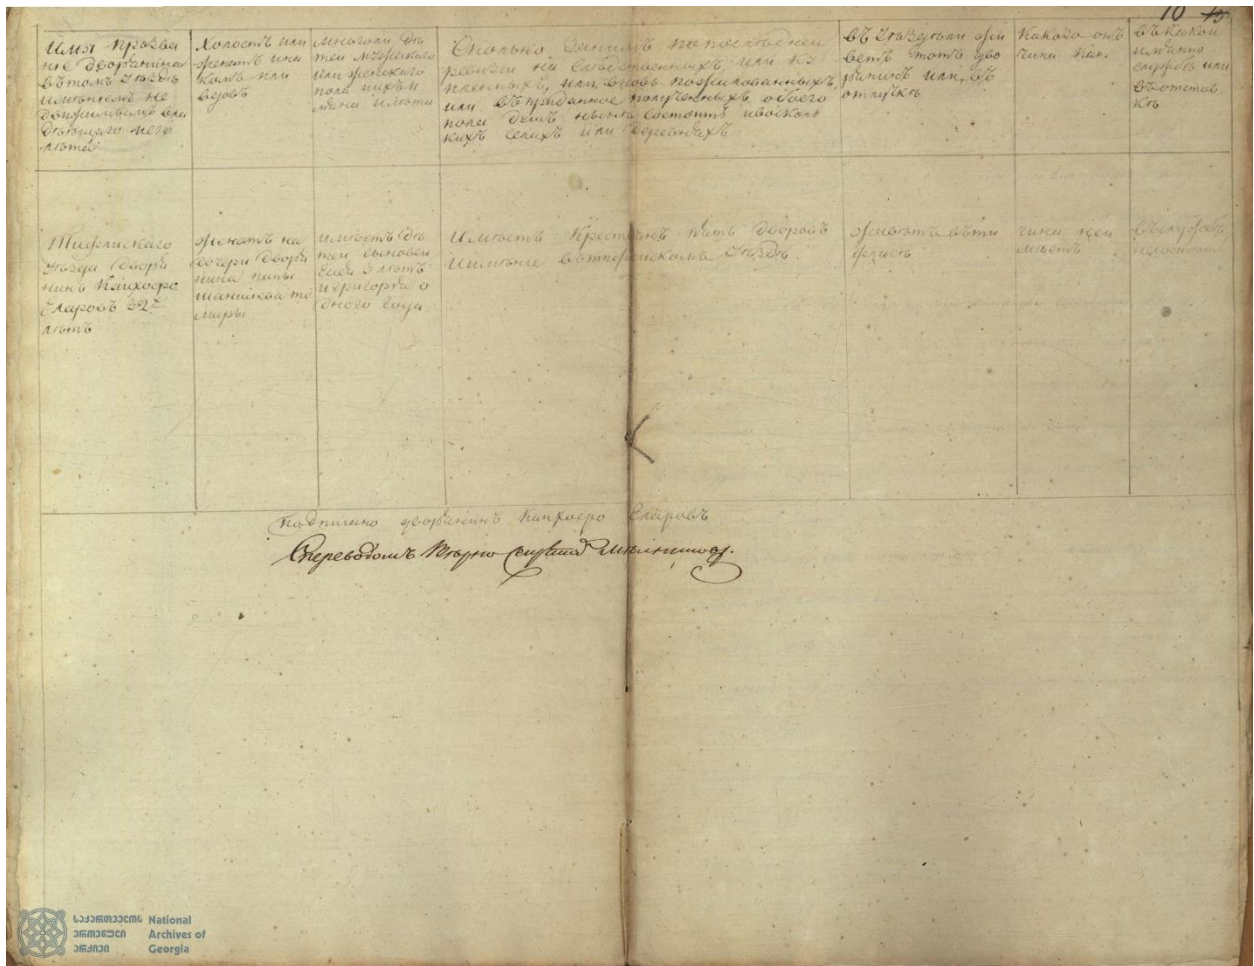 10 15
Имя прозва
ние дворянина
въ томъ уѣздѣ
имѣніемъ не
движимымъ вла
дѣющаго и его
лѣта
Холостъ или
женатъ и на
комъ или
вдовъ
много ли дѣ
тей мужескаго
или женскаго
пола ихъ и
мяна и лѣта
Сколько за нимъ по последней
ревизіи на
или
или въ приданое полученныхъ обоего
пола душъ нынѣ состоитъ и во сколь
кихъ селахъ или деревняхъ
въ уѣздѣ ли жи
ветъ тотъ дво
рянинъ или въ
отлучкѣ
какого онъ
чина
въ какой
имянно
службѣ или
въ отстав
кѣ
Тифлискаго
уѣзда дворя
нинъ Кайхосро
Еларовъ 32х
лѣтъ
женатъ на
дочери дворя
нина
имѣетъ дѣ
тей сыновей
3 лѣтъ
и григорія о
дного года
Имѣетъ Крестьянъ пять дворовъ
и имѣніе въ тифлискомъ уѣздѣ
живетъ въ ти
флисѣ
чина не и
мѣетъ
въ службѣ
не состоитъ
Подписано дворянинъ Кайхосро Еларовъ
Съ переводомъ Вѣрно
საქართველოს
ეროვნული
არქივი
National
Archives of
Georgia